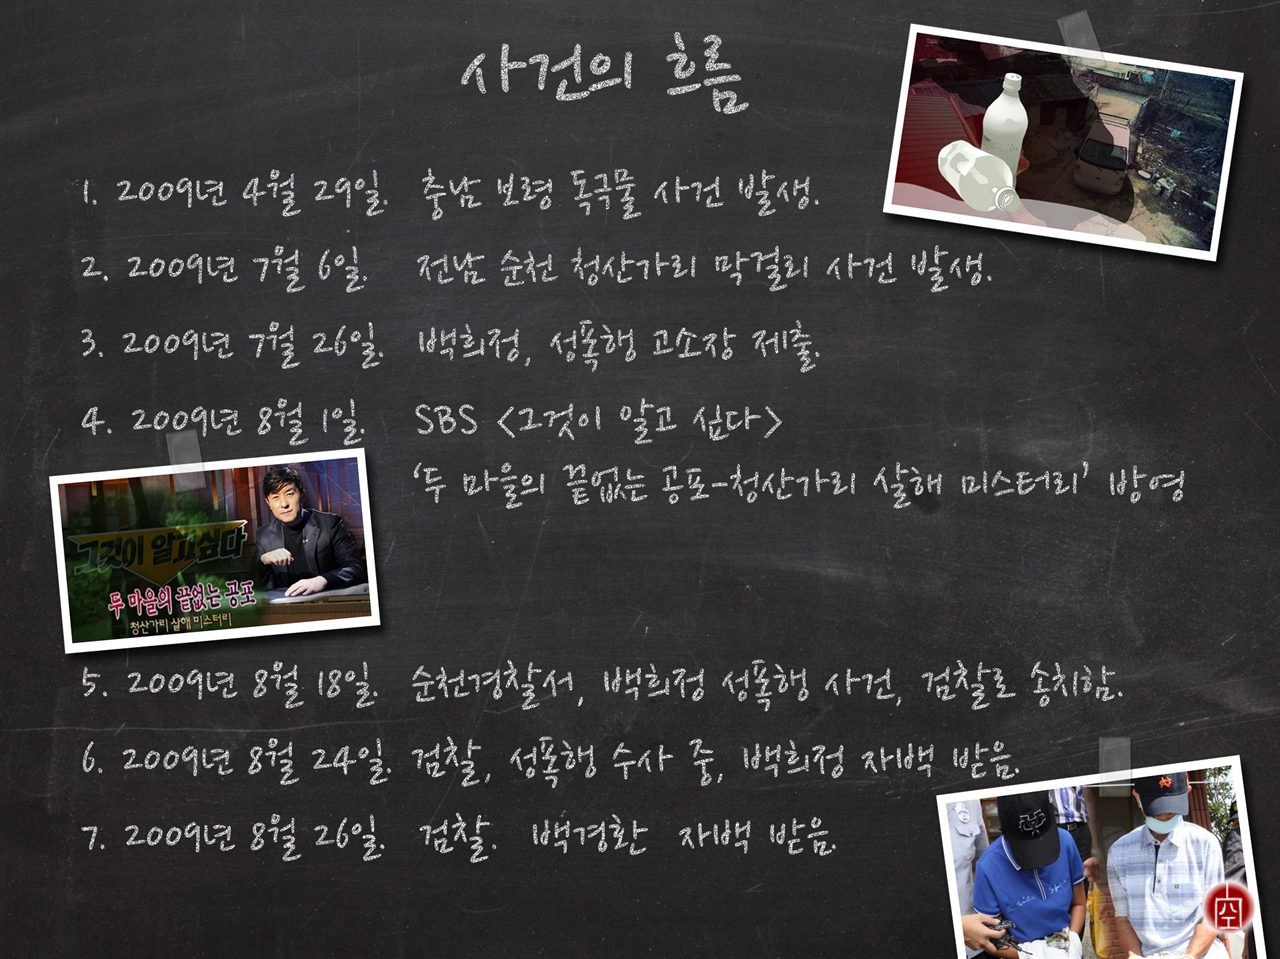 사건의 흐름
1. 2009년 4월 29일. 충남 보령 독극물 사건 발생.
2. 2009년 7월 6일. 전남 순천 청산가리 막걸리 사건 발생.
3. 2009년 7월 26일. 백희정, 성폭행 고소장 제출.
4. 2009년 8월 1일. SBS <그것이 알고 싶다>
‘두 마을의 끝없는 공포-청산가리 살해 미스터리’ 방영
그것이 알고싶다
두 마을의 끝없는 공포
청산가리 살해 미스터리
5. 2009년 8월 18일. 순천경찰서, 백희정 성폭행 사건, 검찰로 송치함.
6. 2009년 8월 24일. 검찰, 성폭행 수사 중, 백희정 자백 받음.
7. 2009년 8월 26일. 검찰. 백경환 자백 받음.